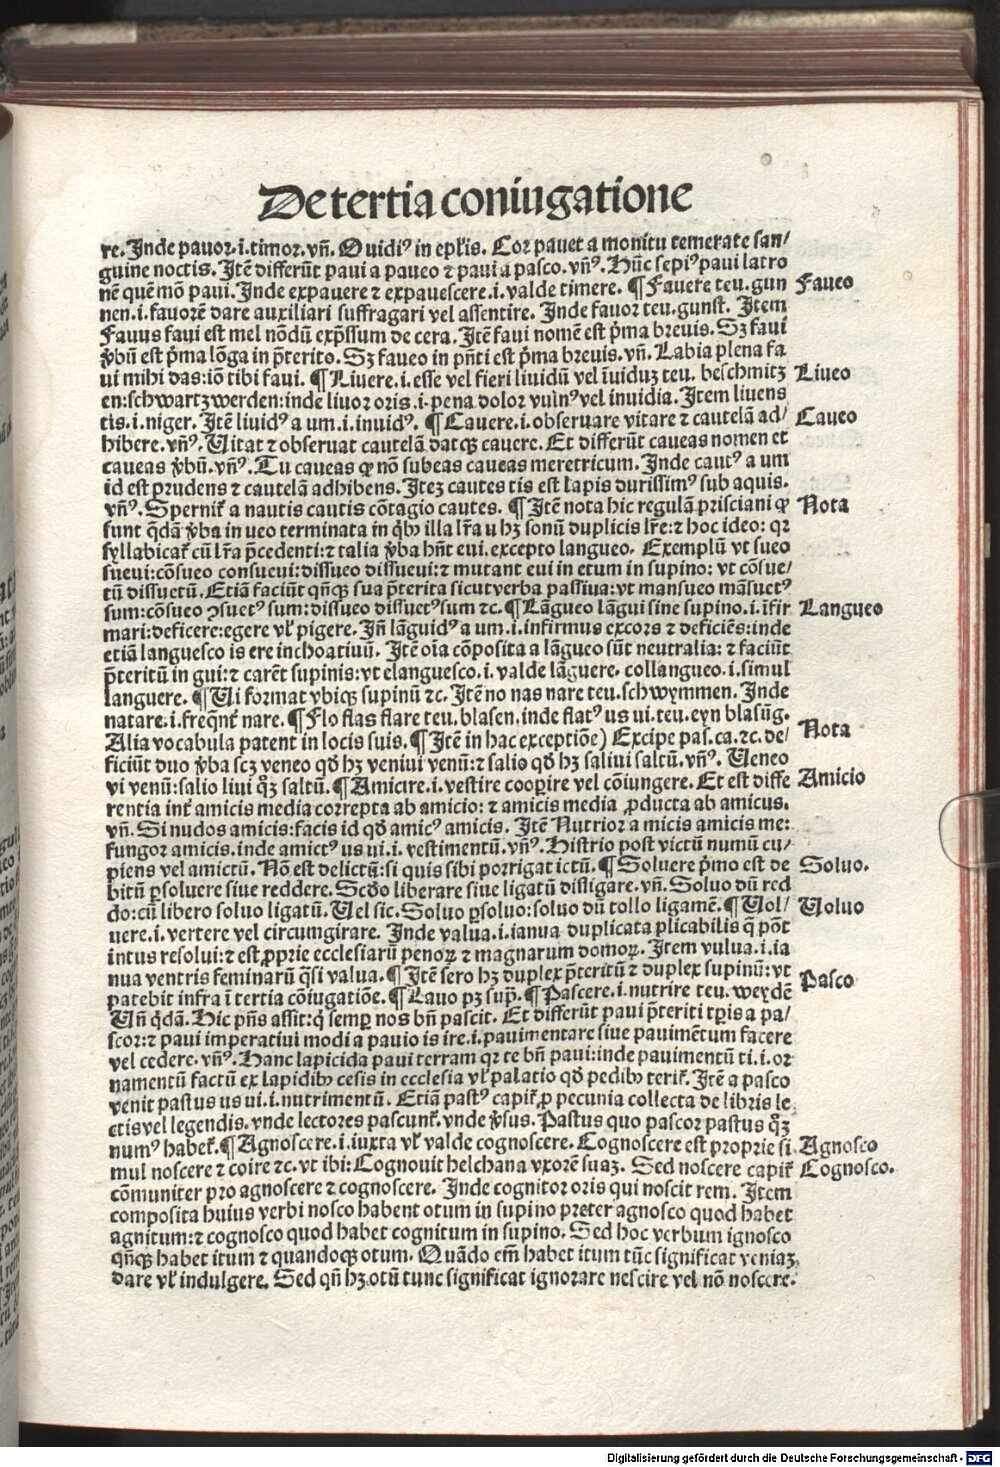 De tertia coniugatione
re. Inde pauor .i. timor. vn̄. Ouidiꝰ in epl'is. Cor pauet a monitu temerate san/
guine noctis. Itē differūt paui a paueo ⁊ paui a pasco. vn̄ꝰ. Hūc sepiꝰ paui latro
nē quē mō paui. Inde expauere ⁊ expauescere .i. valde timere. ¶ Fauere teu. gun
Faueo
nen .i. fauorē dare auxiliari suffragari vel assentire. Inde fauor teu. gunst. Item
Fauus faui est mel nōdū exp̄ssum de cera. Itē faui nomē est p̄ma breuis. Sꝫ faui
v̄bū est p̄ma lōga in p̄terito. Sꝫ faueo in pn̄ti est p̄ma breuis. vn̄. Labia plena fa
ui mihi das: iō tibi faui. ¶ Liuere .i. esse vel fieri liuidū vel īuiduꝫ teu. beschmitz
Liueo
en: schwartz werden: inde liuor oris .i. pena dolor vulnꝰ vel inuidia. Item liuens
tis .i. niger. Itē liuidꝰ a um .i. inuidꝰ. ¶ Cauere .i. obseruare vitare ⁊ cautelā ad/
Caueo
hibere. vn̄ꝰ. Uitat ⁊ obseruat cautelā datqꝫ cauere. Et differūt caueas nomen et
caueas v̄bū. vn̄ꝰ. Tu caueas ꝙ nō subeas caueas meretricum. Inde cautꝰ a um
id est prudens ⁊ cautelā adhibens. Iteꝫ cautes tis est lapis durissimꝰ sub aquis.
vn̄ꝰ. Spernit̄ a nautis cautis cōtagio cautes. ¶ Itē nota hic regulā prisciani ꝙ
Nota
sunt qdā v̄ba in ueo terminata in qbꝫ illa lr̄a u hꝫ sonū duplicis lr̄e: ⁊ hoc ideo: qꝛ
syllabicat̄ cū lr̄a p̄cedenti: ⁊ talia v̄ba hn̄t eui. excepto langueo. Exemplū vt sueo
sueui: cōsueo consueui: dissueo dissueui: ⁊ mutant eui in etum in supino: vt cōsue/
tū dissuetū. Etiā faciūt qn̄qꝫ sua p̄terita sicut verba passiua: vt mansueo māsuetꝰ
sum: cōsueo ꝯsuetꝰ sum: dissueo dissuetꝰ sum ⁊c. ¶ Lāgueo lāgui sine supino .i. īfir
Langueo
mari: deficere: egere vl' pigere. Jn̄ lāguidꝰ a um .i. infirmus excors ⁊ deficiēs: inde
etiā languesco is ere inchoatiuū. Itē oīa cōposita a lāgueo sūt neutralia: ⁊ faciūt
p̄teritū in gui: ⁊ carēt supinis: vt elanguesco .i. valde lāguere. collangueo .i. simul
languere. ¶ Ui format vbiqꝫ supinū ⁊c. Itē no nas nare teu. schwymmen. Inde
natare .i. freqn̄t̄ nare. ¶ Flo flas flare teu. blasen. inde flatꝰ us ui. teu. eyn blasūg.
Alia vocabula patent in locis suis. ¶ Itē in hac exceptiōe) Excipe pas. ca. ⁊c. de/
Nota
ficiūt duo v̄ba scꝫ veneo qd̄ hꝫ veniui venū: ⁊ salio qd̄ hꝫ saliui saltū. vn̄ꝰ. Ueneo
vi venū: salio liui qꝫ saltū. ¶ Amicire .i. vestire cooperire vel cōiungere. Et est diffe
Amicio
rentia int̄ amicis media correpta ab amicio: ⁊ amicis media ꝓducta ab amicus.
vn̄. Si nudos amicis: facis id qd̄ amicꝰ amicis. Itē Nutrior a micis amicis me:
fungor amicis. inde amictꝰ us ui .i. vestimentū. vn̄ꝰ. Histrio post victū numū cu/
piens vel amictū. Nō est delictū: si quis sibi porrigat ictū. ¶ Soluere p̄mo est de
Soluo.
bitū ꝑsoluere siue reddere. Scd̄o liberare siue ligatū disligare. vn̄. Soluo dū red
do: cū libero soluo ligatū. Uel sic. Soluo ꝑsoluo: soluo dū tollo ligamē. ¶ Uol/
Uoluo
uere .i. vertere vel circumgirare. Inde valua .i. ianua duplicata plicabilis q̄ pōt
intus resolui: ⁊ est ꝓprie ecclesiarū penoꝝ ⁊ magnarum domoꝝ. Item vulua .i. ia
nua ventris feminarū qsi valua. ¶ Itē sero hꝫ duplex p̄teritū ⁊ duplex supinū: vt
patebit infra ī tertia cōiugatiōe. ¶ Lauo pꝫ sup̄. ¶ Pascere .i. nutrire teu. weydē
Pasco
Un̄ qdā. Hic pn̄s assit: q semꝑ nos bn̄ pascit. Et differūt paui p̄teriti tꝑis a pa/
scor: ⁊ paui imperatiui modi a pauio is ire .i. pauimentare siue pauimētum facere
vel cedere. vn̄ꝰ. Hanc lapicida paui terram qꝛ te bn̄ paui: inde pauimentū ti .i. or
namentū factū ex lapidibꝫ cesis in ecclesia vl' palatio qd̄ pedibꝫ terit̄. Itē a pasco
venit pastus us ui .i. nutrimentū. Etiā pastꝰ capit̄ ꝓ pecunia collecta de libris le
ctis vel legendis. vnde lectores pascunt̄. vnde v̄sus. Pastus quo pascor pastus qꝫ
numꝰ habet̄. ¶ Agnoscere .i. iuxta vl' valde cognoscere. Cognoscere est proprie si
Agnosco
mul noscere ⁊ coire ⁊c. vt ibi: Cognouit helchana vxorē suaꝫ. Sed noscere capit̄
Cognosco.
cōmuniter pro agnoscere ⁊ cognoscere. Inde cognitor oris qui noscit rem. Item
composita huius verbi nosco habent otum in supino preter agnosco quod habet
agnitum: ⁊ cognosco quod habet cognitum in supino. Sed hoc verbum ignosco
qn̄qꝫ habet itum ⁊ quandoqꝫ otum. Quādo em̄ habet itum tūc significat veniaꝫ
dare vl' indulgere. Sed qn̄ hꝫ otū tunc significat ignorare nescire vel nō noscere.
Digitalisierung gefördert durch die Deutsche Forschungsgemeinschaft - DFG